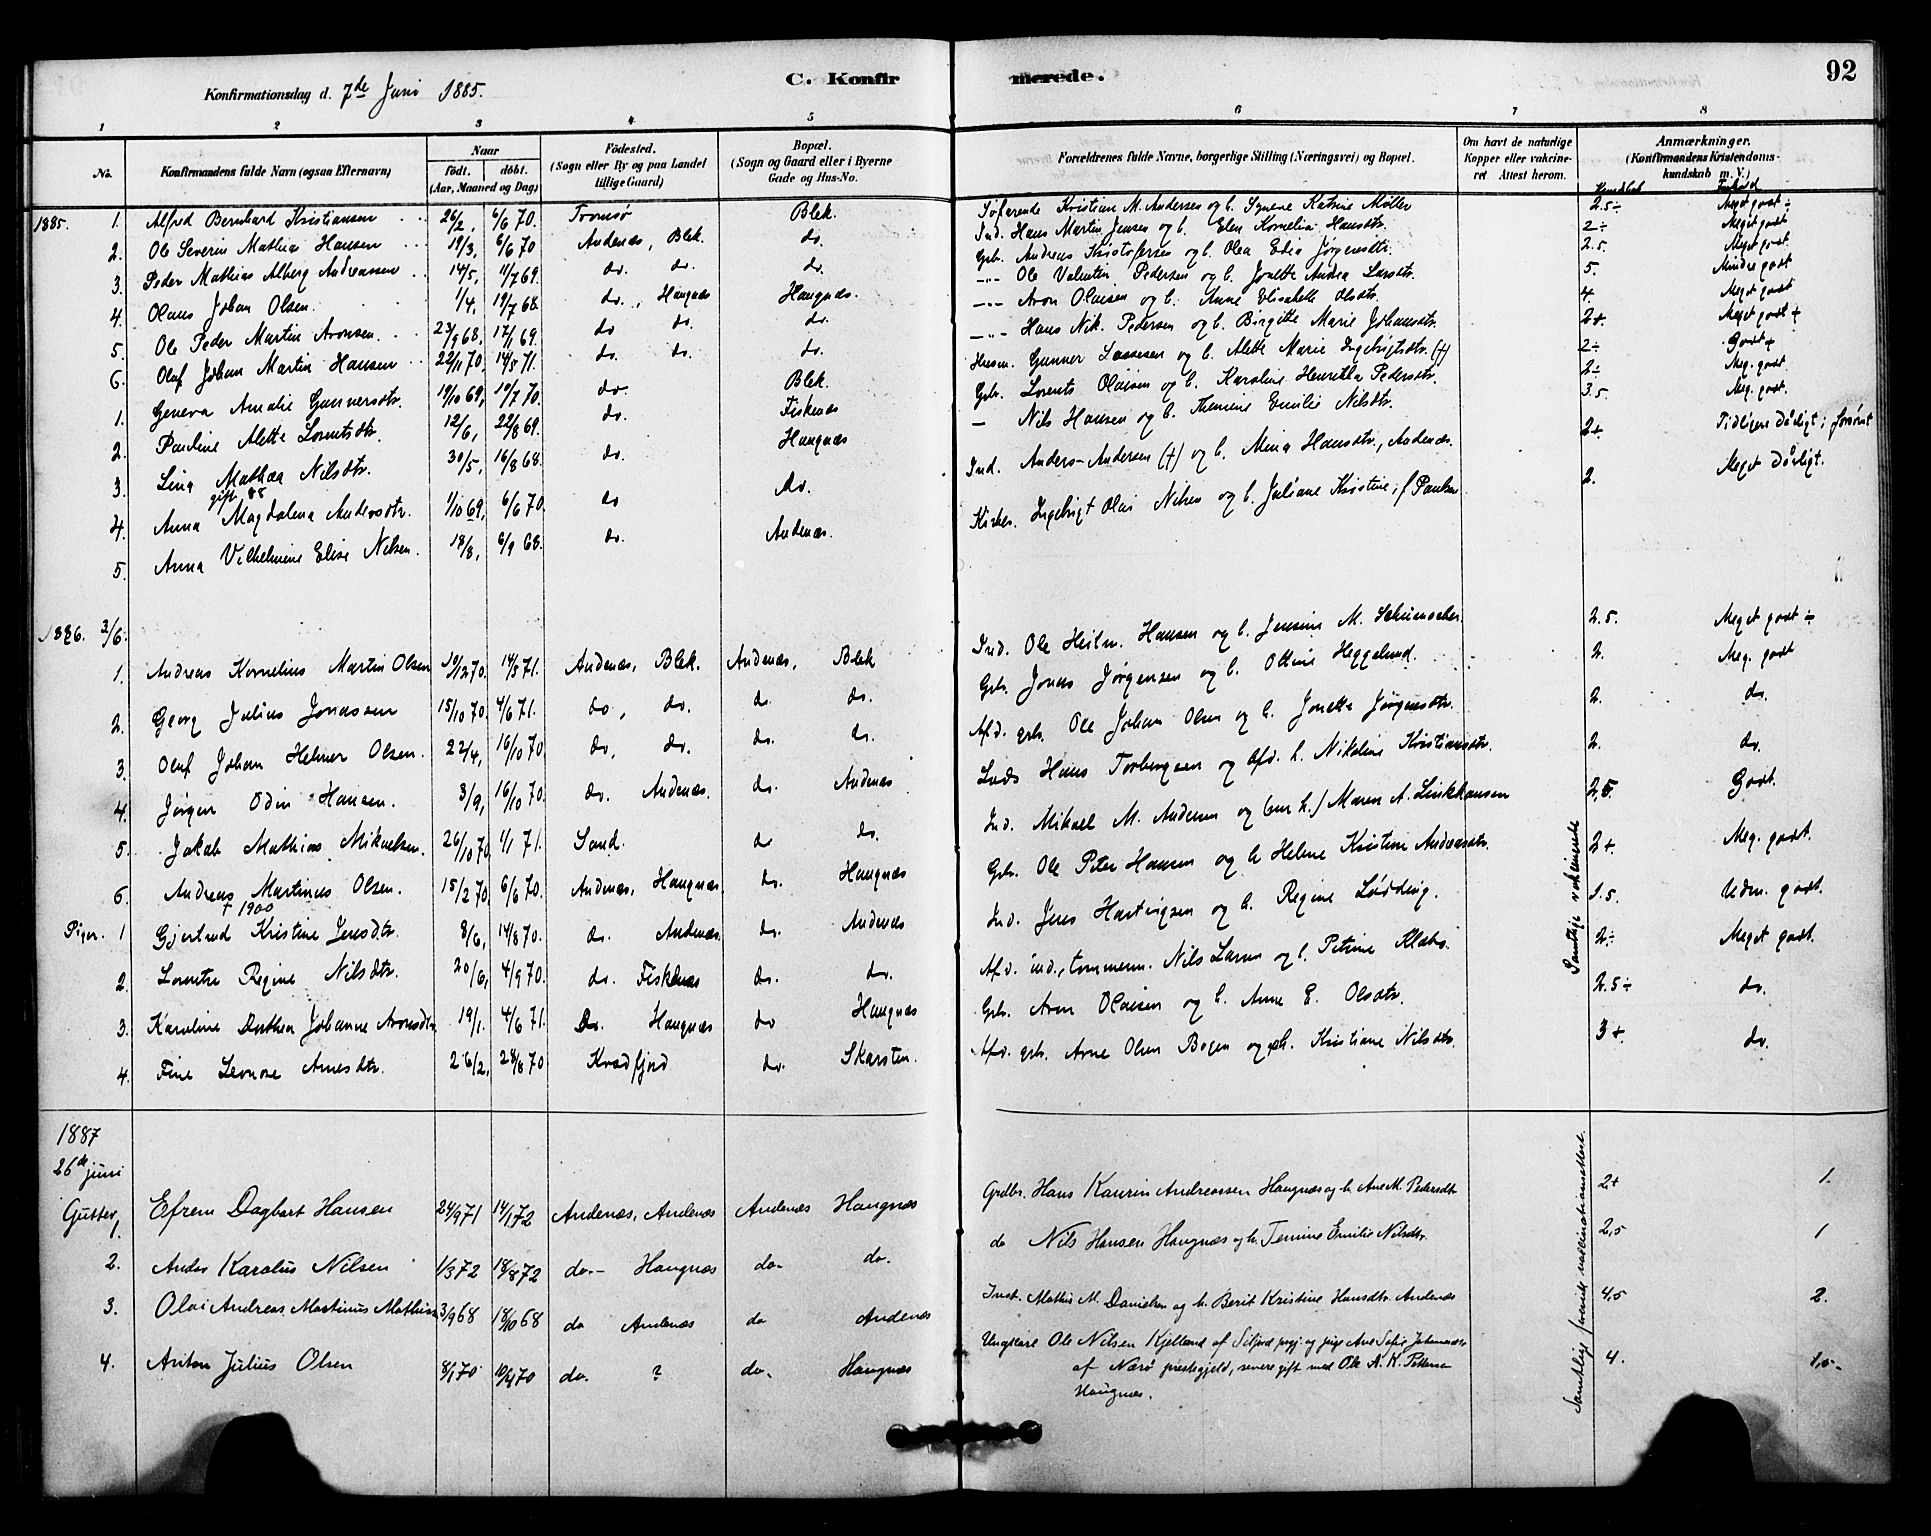 92
C. Konfirmerede.
Konfirmationsdag d. 7de Juni 1885.
1 2 3 4 5 6 7 8
No. Konfirmandens fulde Navn (ogsaa Efternavn) Naar födt. döbt. (Aar, Maaned og Dag) Födested. (Sogn eller By og paa Landet tillige Gaard) Bopæl. (Sogn og Gaard eller i Byerne Gade og Hus-No. Forældrenes fulde Navne, borgerlige Stilling (Næringsvei) og Bopæl. Om havt de naturlige Kopper eller vakcineret Attest herom. Anmærkninger. (Konfirmandens Kristendomskundskab m. V.)
Kundskab Forhold
1885. 1. Alfred Bernhard Kristiansen 26/2, 6/6 70. Tromsø Blek. Søfarende Kristian M. Andersen og h. Katrine Møller 2.5÷ Meget godt ÷
2. Ole Severin Mathias Hansen 19/3, 6/6 70 Andenæs, Blek. do. Ind. Hans Martin Jensen og h. Elen Kornelia Hansdtr. 2÷ Meget godt
3. Peder Mathias Alberg Andreassen 14/5, 11/7 69. do. do. do. Grb. Andreas Kristofersen og h. Olea Edia Jørgensdtr. 2.5. Meget godt.
4. Olaus Johan Olsen. 1/4, 19/7 68. do., Haugnæs Haugnæs. -"- Ole Valentin Pedersen og h. Jonette Andrea Larsdtr. 5. Mindre godt
5. Ole Peder Martin Aronsen. 23/9 68, 17/1 69. do do. do. -"- Aron Olaisen og h. Anne Elisabeth Olsdtr. 4. Meget godt
6. Olaf Johan Martin Hansen 22/11 70, 14/5 71. do. do. do. -"- Hans Nik. Pedersen og h. Birgitte Marie Johansdtr. 2+. Meget godt +
1. Geneva Amalie Gunnersdtr. 19/10 69, 19/7 70. do. Blek. Husm. Gunner Lassesen og h. Alette Marie Ingebrigtsdtr. (†) 2÷ Godt+
2. Pauline Alette Lorentsdtr. 12/6, 22/8 69. do. Fiskenæs Grb. Lorents Olaisen og h. Karoline Henrikka Pedersdtr. 2÷ Meg. godt.
3. Lina Mathea Nilsdtr. 30/5, 16/8 68. do. Haugnæs — Nils Hansen og h. Themine Emilie Nilsdtr. 3.5 Meg. godt.
gift 88
4. Anna Magdalena Andersdtr. 1/10 69, 6/6 70. do do. Ind. Anders Andersen (†) og h. Mina Hansdtr., Andenæs. 2+. Tidligere Dårligt;
5. Anna Vilhelmine Elise Nilsen. 18/8, 6/9 68. do. Andenæs. Kirkes. Ingebrigt Olai Nilsen og h. Juliane Kristine, f Paulsen 2. Meget Dårligt.
1886. 3/6.
1. Andreas Kornelius Martin Olsen 19/12 70. 14/5 71. Andenæs, Blek. Andenæs, Blek Ind. Ole Heilm. Hansen og h. Jensine M. Schumacher 2.5. Meget godt ÷
2. Georg Julius Jonassen 15/10 70. 4/6 71. do, do. do. do. Grb. Jonas Jørgensen og h. Ottine Heggelund. 2. Meg. godt
3. Olaf Johan Helmer Olsen. 22/4, 16/10 70 do, do. do. do. Afd. grb. Ole Johan Olsen og h. Jonetta Jørgensdtr. 2. do.
4. Jørgen Odin Hansen. 3/9, 16/10 70. do. Andenæs. do. Andenæs Hans Torbergsen og afd. h. Nikoline Kristiansdtr. 2. do.
5. Jakob Mathias Mikaelsen. 26/10 70 4/1 71. Sand. do do. Ind. Mikael M. Andersen og (nu h.) Maren A. Linkhausen 2,5. Godt.
6. Andreas Martinus Olsen. 15/2 70, 6/6 70. Andenæs, Haugnæs. do. Haugnæs Grb. Ole Peter Hansen og h Heline Kristine Andreasdtr. 2+. Meg. godt.
† 1900
Piger. 1 Gjertrud Kristine Jensdtr. 8/6, 14/8 70. do. Andenæs. do. Andenæs Ind. Jens Hartvigsen og h. Regine Lødding. 1.5. Udm. godt.
2. Lorentze Regine Nilsdtr. 20/6, 4/9 70. do. Fiskenæs do. do. Afd. ind., tømmerm. Nils Larsen og h. Petrine Klæbo. 2÷ Meget godt.
3. Karoline Dorthea Johanne Aronsdtr 19/1. 4/6 71. Do. Haugnæs do Haugnæs Grb. Aron Olaisen og h. Anne E. Olsdtr. 2.5÷ do.
4. Fine Leonore Arnesdtr. 26/2, 28/8 70 Kvædfjord do. Skarsten. Afd. grb. Arne Olsen Bogen og h. Kristiane Nilsdtr. 3+ do.
Samtlige vakcinerede
1887
26de juni
Gutter 1. Efrem Dagbart Hansen 24/9 71 14/1 72 Andenæs, Andenæs Andenæs Haugnæs Grdbr. Hans Kaurin Andreassen Haugnæs og h. Ane M. Pedersdtr 2+ 1.
2. Andor Karolius Nilsen 1/3 72 18/8 72 do.- Haugnæs do. do. do Nils Hansen Haugnæs og h. Temine Emilie Nilsdtr. 2,5 1
3. Olai Andreas Martinus 3/9 68 18/10 68 do Andenæs do Andenæs Inst. Mathis M. Danielsen og h. Berit Kristine Hansdtr Andenæs 4,5 2.
4. Anton Julius Olsen 8/1 70 10/4 70 do. ? do. Haugnæs Ungkarl Ole Nilsen Kjelland af og pige Ane Sofie
af Nærø prestegjeld, senere gift med Ole A. K. Pettersen 4. 1,5-
Haugnæs.
Samtlige vaccinationsattest.